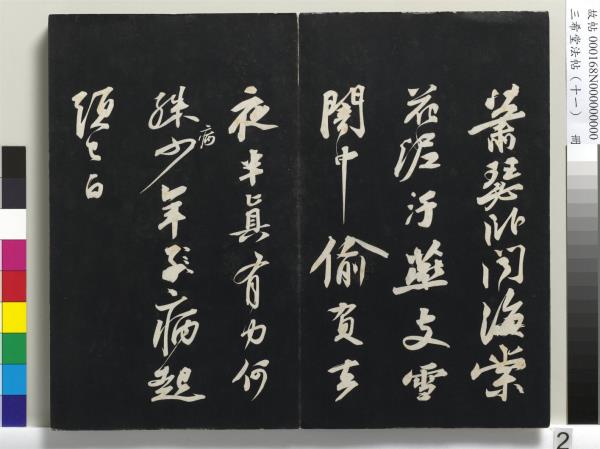 蕭瑟卧聞海棠
花泥汙燕支雪
闇中偷負去
夜半真有力何
殊病少年子病起
頭已白
故帖000168N000000000
三希堂法帖(十一) 冊
2